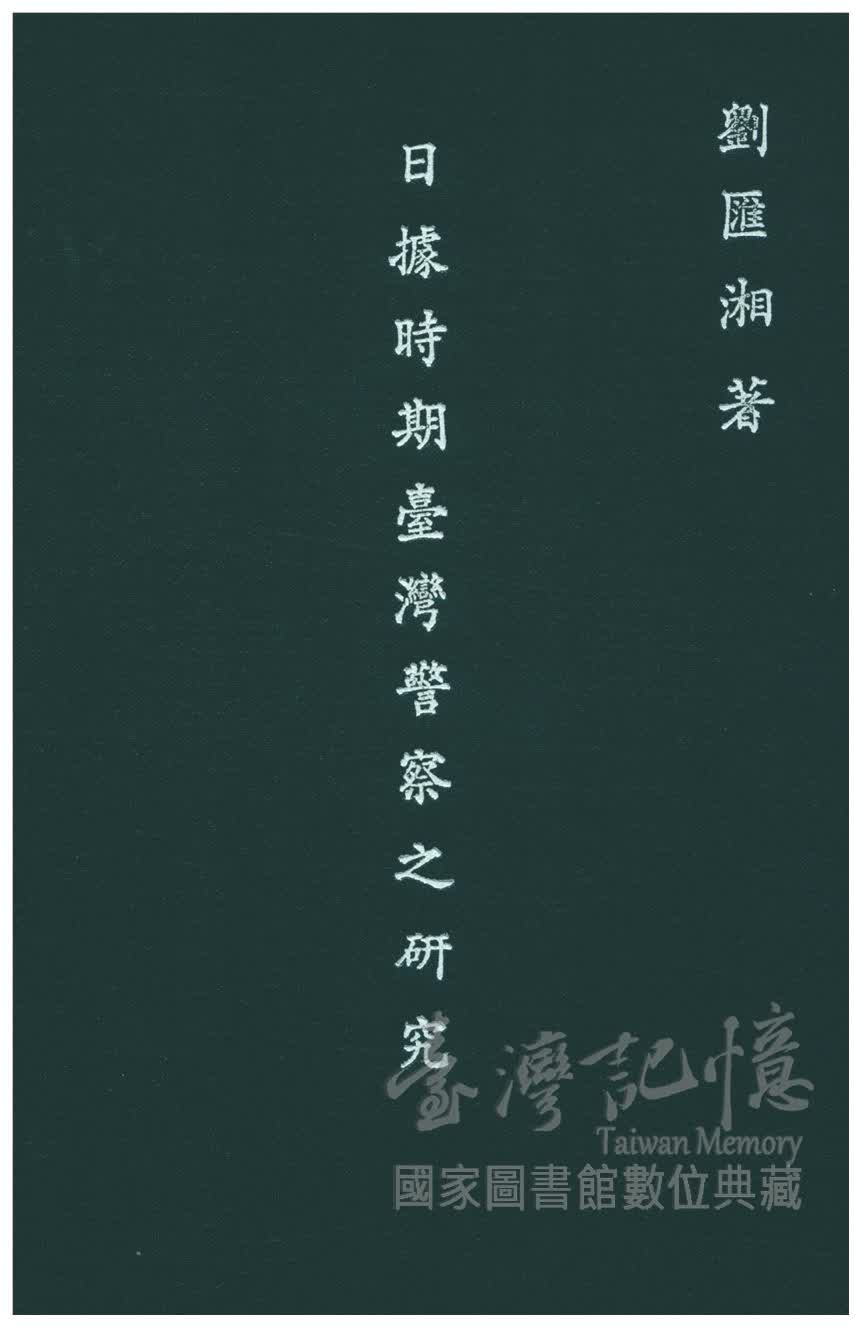 劉匯湘著
日據時期臺灣警察之研究
臺灣記憶
Taiwan Memory
國家圖書館數位典藏